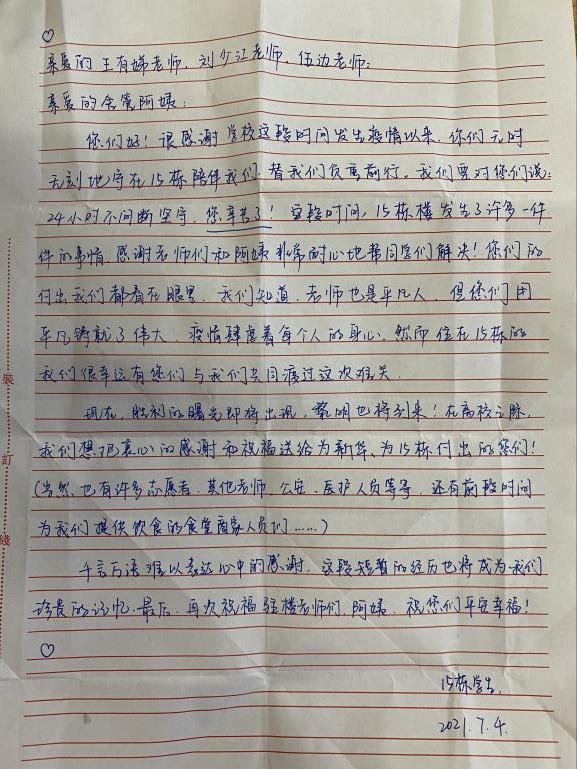 亲爱的王有娣老师，刘少江老师，伍边老师：
亲爱的舍管阿姨：
您们好！很感谢学校这段时间发生疫情以来，你们无时
无刻地守在15栋陪伴我们，替我们负重前行。我们要对您们说：
24小时不间断坚守，您辛苦了！这段时间，15栋楼发生了许多一件
件的事情，感谢老师们和阿姨非常耐心地帮同学们解决！您们的
付出我们都看在眼里，我们知道，老师也是平凡人，但您们用
平凡铸就了伟大，疫情肆虐着每个人的身心，然而住在15栋的
我们很幸运有您们与我们共同渡过这次难关。
现在，胜利的曙光即将出现，黎明也将到来！在离校之际，
我们想把衷心的感谢和祝福送给为新华、为15栋付出的您们！
（当然，也有许多志愿者、其他老师、公安、医护人员等等，还有前段时间
为我们提供饮食的食堂商家人员们……）
千言万语难以表达心中的感谢，这段短暂的经历也将成为我们
珍贵的记忆，最后，再次祝福驻楼老师们、阿姨，祝您们平安幸福！
15栋学生
2021.7.4.
裝
訂
綫